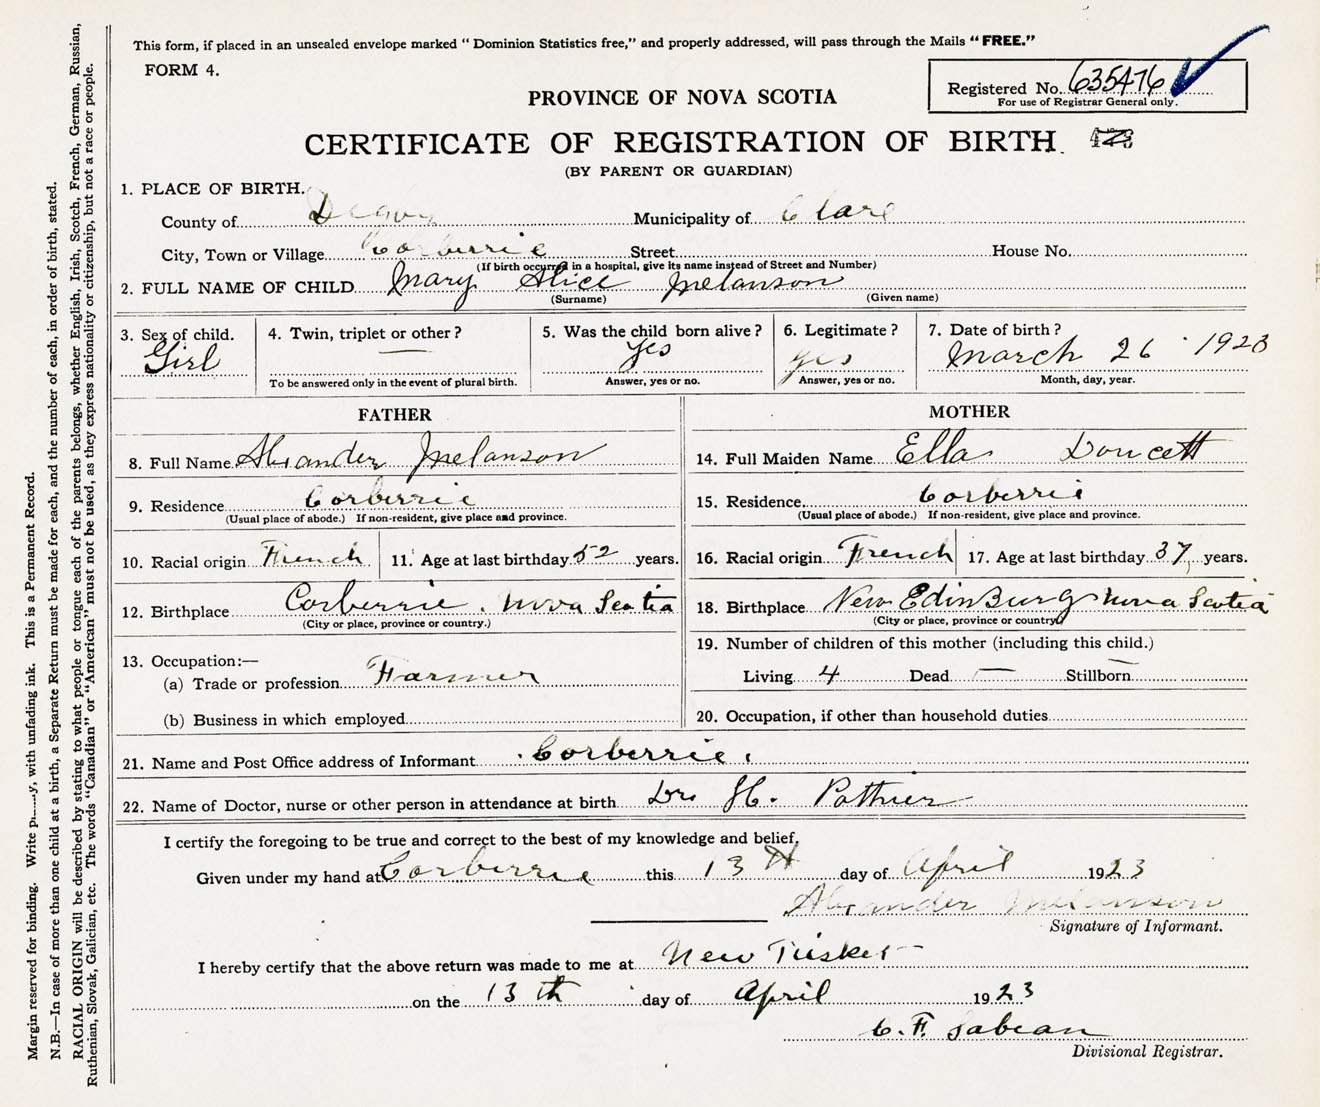 This form, if placed in an unsealed envelope marked " Dominion Statistics free," and properly addressed, will pass through the Mails "FREE."
FORM 4.
Registered No. 635476
For use of Registrar General only.
PROVINCE OF NOVA SCOTIA
CERTIFICATE OF REGISTRATION OF BIRTH.
(BY PARENT OR GUARDIAN)
1. PLACE OF BIRTH.
County of Municipality of Clare
City, Town or Village Corberrie Street House No.
(If birth occurred in a hospital, give its name instead of Street and Number)
2. FULL NAME OF CHILD Mary Alice Melanson
(Surname) (Given name)
3. Sex of child. Girl
4. Twin, triplet or other? —
To be answered only in the event of plural birth.
5. Was the child born alive? yes
Answer, yes or no.
6. Legitimate? yes
Answer, yes or no.
7. Date of birth? March 26 1923
Month, day, year.
FATHER
8. Full Name Alexander Melanson
9. Residence Corberrie
(Usual place of abode.) If non-resident, give place and province.
10. Racial origin French 11. Age at last birthday 52 years.
12. Birthplace Corberrie. Nova Scotia
(City or place, province or country.)
13. Occupation:—
(a) Trade or profession Farmer
(b) Business in which employed
MOTHER
14. Full Maiden Name Ella Doucett
15. Residence Corberrie
(Usual place of abode.) If non-resident, give place and province.
16. Racial origin French 17. Age at last birthday 37 years.
18. Birthplace New EdinBurg Nova Scotia
(City or place, province or country)
19. Number of children of this mother (including this child.)
Living 4 Dead — Stillborn —
20. Occupation, if other than household duties
21. Name and Post Office address of Informant Corberrie.
22. Name of Doctor, nurse or other person in attendance at birth Dr. H. Pothier
I certify the foregoing to be true and correct to the best of my knowledge and belief,
Given under my hand at Corberrie this 13th day of April 1923
Alexander Melanson
Signature of Informant.
I hereby certify that the above return was made to me at New Tusket
on the 13th day of April 1923
C. F. Sabean
Divisional Registrar.
Margin reserved for binding. Write with unfading ink. This is a Permanent Record.
N.B.—In case of more than one child at a birth, a Separate Return must be made for each, and the number of each, in order of birth, stated.
RACIAL ORIGIN will be described by stating to what people or tongue each of the parents belongs, whether English, Irish, Scotch, French, German, Russian,
Ruthenian, Slovak, Galician, etc. The words "Canadian" or "American" must not be used, as they express nationality or citizenship, but not a race or people.